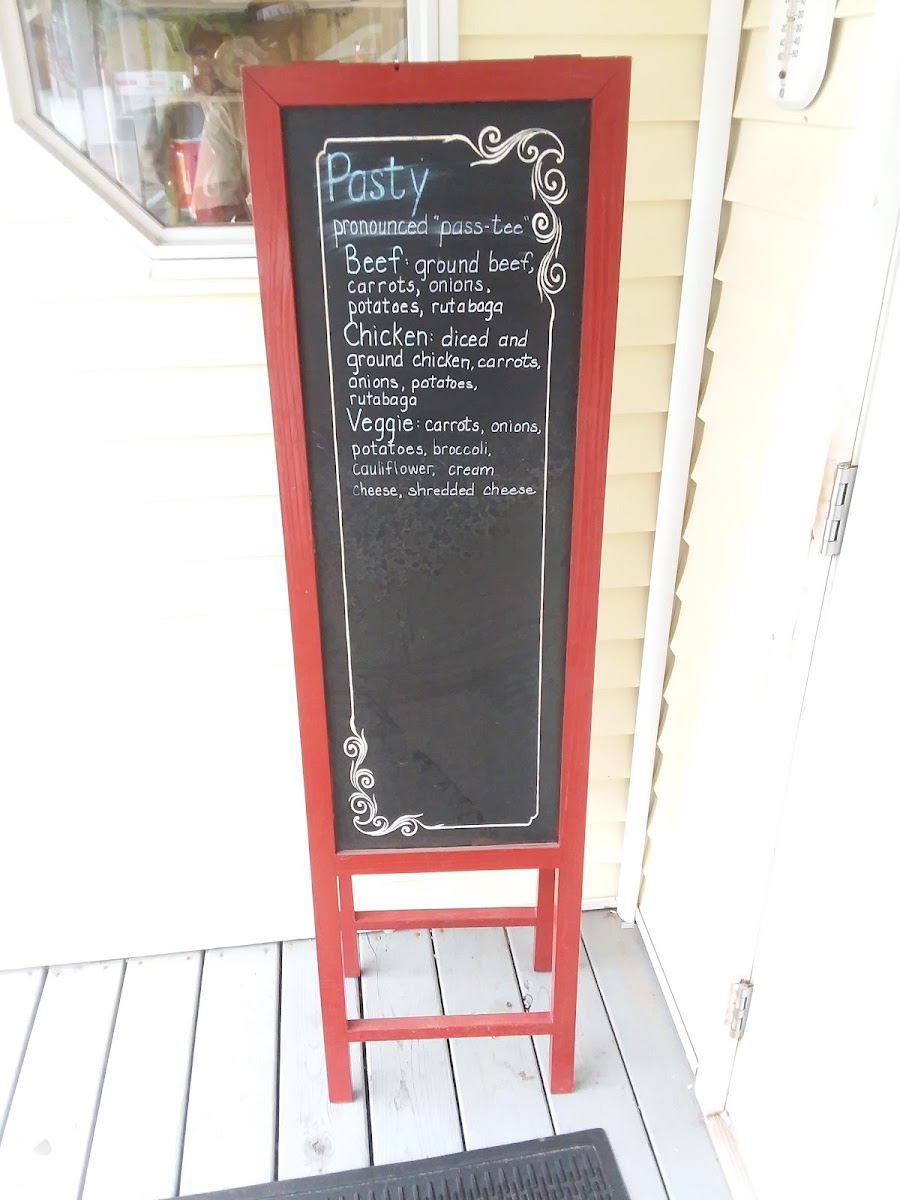 Pasty
pronounced "pass-tee"
Beef: ground beef,
carrots, onions,
potatoes, rutabaga
Chicken: diced and
ground chicken, carrots,
onions, potatoes,
rutabaga
Veggie: carrots, onions,
potatoes, broccoli,
cauliflower, cream
cheese, shredded cheese